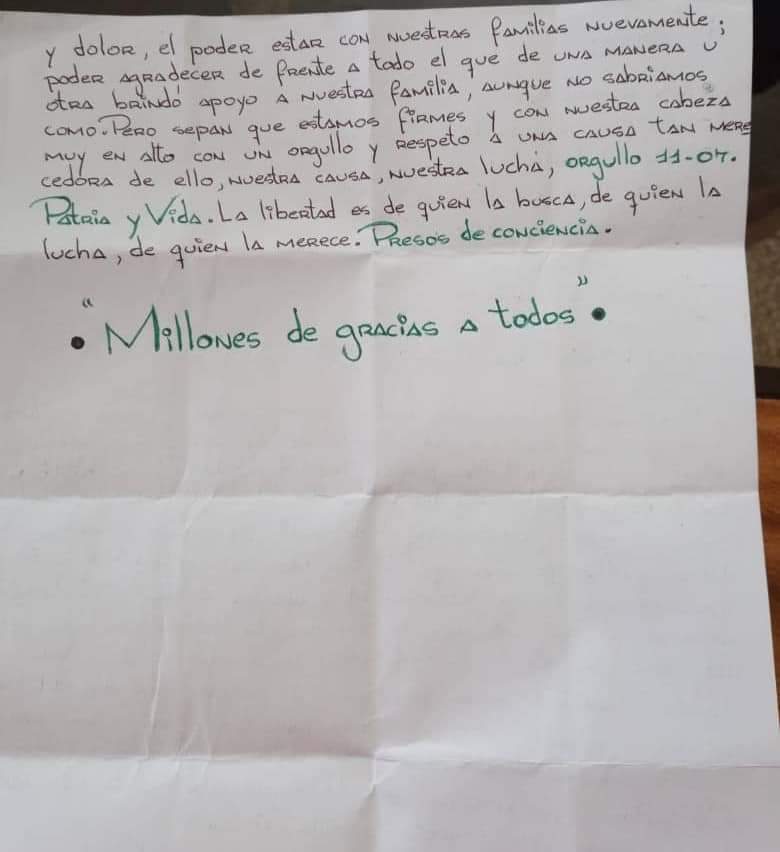 y dolor, el poder estar con nuestras familias nuevamente;
poder agradecer de frente a todo el que de una manera u
otra brindó apoyo a nuestra familia, aunque no sabríamos
como. Pero sepan que estamos firmes y con nuestra cabeza
muy en alto con un orgullo y respeto a una causa tan mere
cedora de ello, nuestra causa, nuestra lucha, orgullo 11-07.
Patria y Vida. La libertad es de quien la busca, de quien la
lucha, de quien la merece. Presos de conciencia.
• "Millones de gracias a todos" •